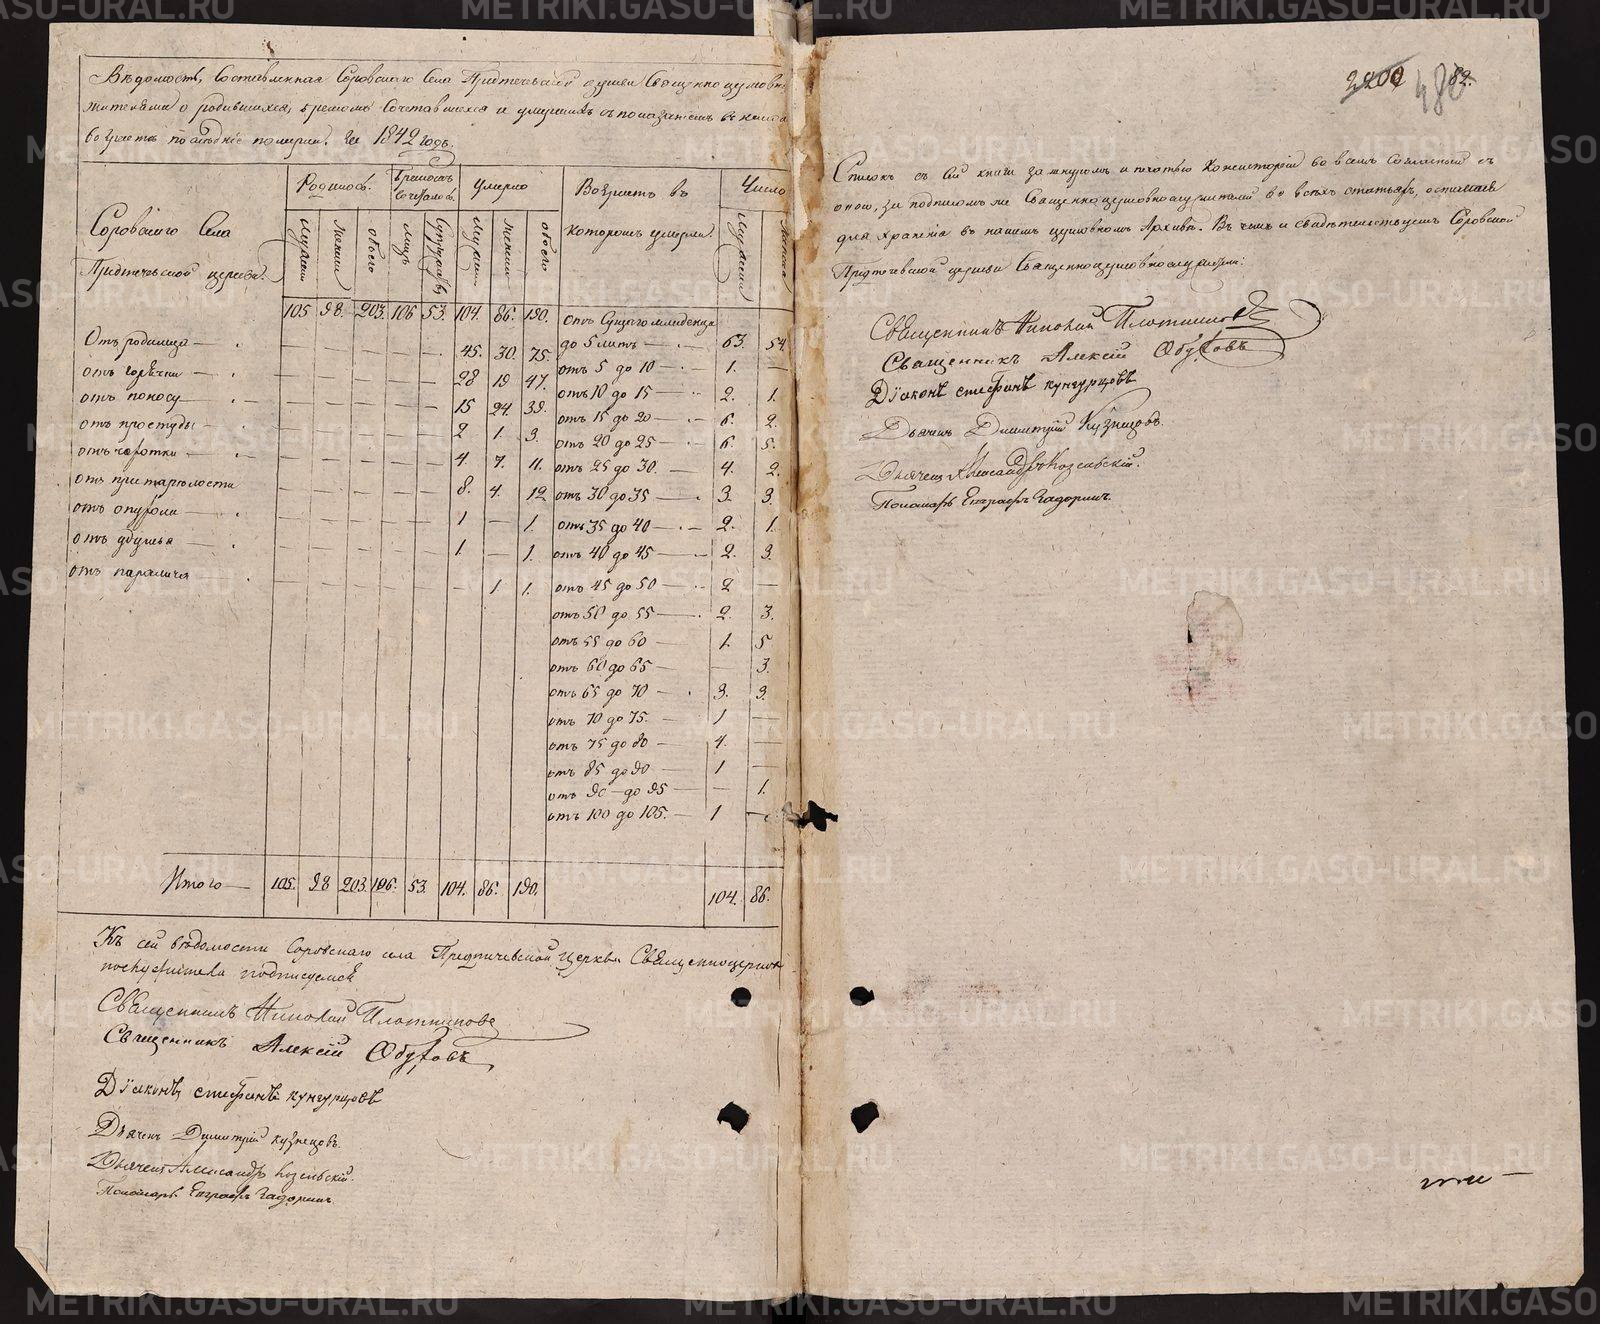 Вѣдомость, Составленная Соровскаго Села Предтечевской церкви Священноцерковно
жителями о родившихся, бракомъ Сочетавшихся и умершихъ съ показаніемъ
возрастѣ послѣдніе померли. За 1842 годъ.
Соровскаго Села
Предтечевской церкви.
Родилось. Бракомъ сочеталось. Умерло Возрастъ въ которомъ умерли Число
мужска женска обоего лицъ супружествъ мужска женска обоего мужска женска
105 98. 203. 106 53. 104. 86. 190. отъ Сущаго младенца
Отъ родимца — 45. 30. 75. до 5 лѣтъ — 63. 54.
отъ горячки — 28 19 47. отъ 5 до 10 — 1. —
отъ поносу — 15 24. 39. отъ 10 до 15 — 2. 1.
отъ простуды — 2 1. 3. отъ 15 до 20 — 6. 2.
отъ чахотки — 4. 7. 11. отъ 20 до 25 — 6. 5.
отъ престарѣлости 8. 4. 12 отъ 25 до 30. — 4. 2.
отъ опухоли — 1 — 1. отъ 30 до 35 — 3. 3.
отъ удушья — 1. — 1. отъ 35 до 40 — 2. 1.
отъ паралича — 1 1. отъ 40 до 45 — 2. 3.
отъ 45 до 50 — 2 —
отъ 50 до 55 — 2. 3.
отъ 55 до 60 1. 5
отъ 60 до 65 — — 3.
отъ 65 до 70 — 3. 3.
отъ 70 до 75. — 1 —
отъ 75 до 80 — 4. —
отъ 85 до 90 — 1 —
отъ 90 — до 95 — — 1.
отъ 100 до 105. — 1 —
Итого — 105. 98 203. 106. 53. 104. 86. 190. 104. 86.
Къ сей вѣдомости Соровскаго села Предтичевской Церкви Священноцерков
нослужители подписуемся
Священникъ Николай Плотниковъ
Священникъ Алексій Обуховъ
Діаконъ стефанъ кунгурцовъ
Дьячекъ Димитрій кузнецовъ.
Дьячекъ Александръ Козельскій.
Пономарь Евграфъ Гадоринъ.
2200 480 82.
Списокъ съ сей книги за шнуромъ и печатью Консисторіи во всемъ согласный съ
оною, за подписомъ же Священноцерковнослужителей во всѣхъ статьяхъ, оставленъ
для храненія въ нашемъ церковномъ Архивѣ. Въ чемъ и свидѣтельствуемъ Соровской
Предтечевской церкви Священноцерковнослужители:
Священникъ Николай Плотниковъ
Священникъ Алексій Обуховъ
Діаконъ стефанъ кунгурцовъ
Дьячекъ Димитрій Кузнецовъ.
Дьячекъ Александръ Козельскій.
Пономарь Евграфъ Гадоринъ.
METRIKI.GASO-URAL.RU